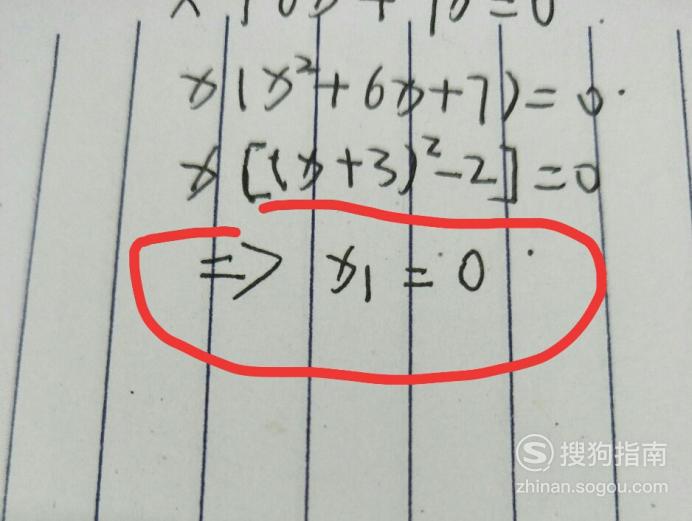 x(x²+6x+7)=0
x[(x+3)²-2]=0
=> x₁=0
搜狗指南
zhinan.sogou.com